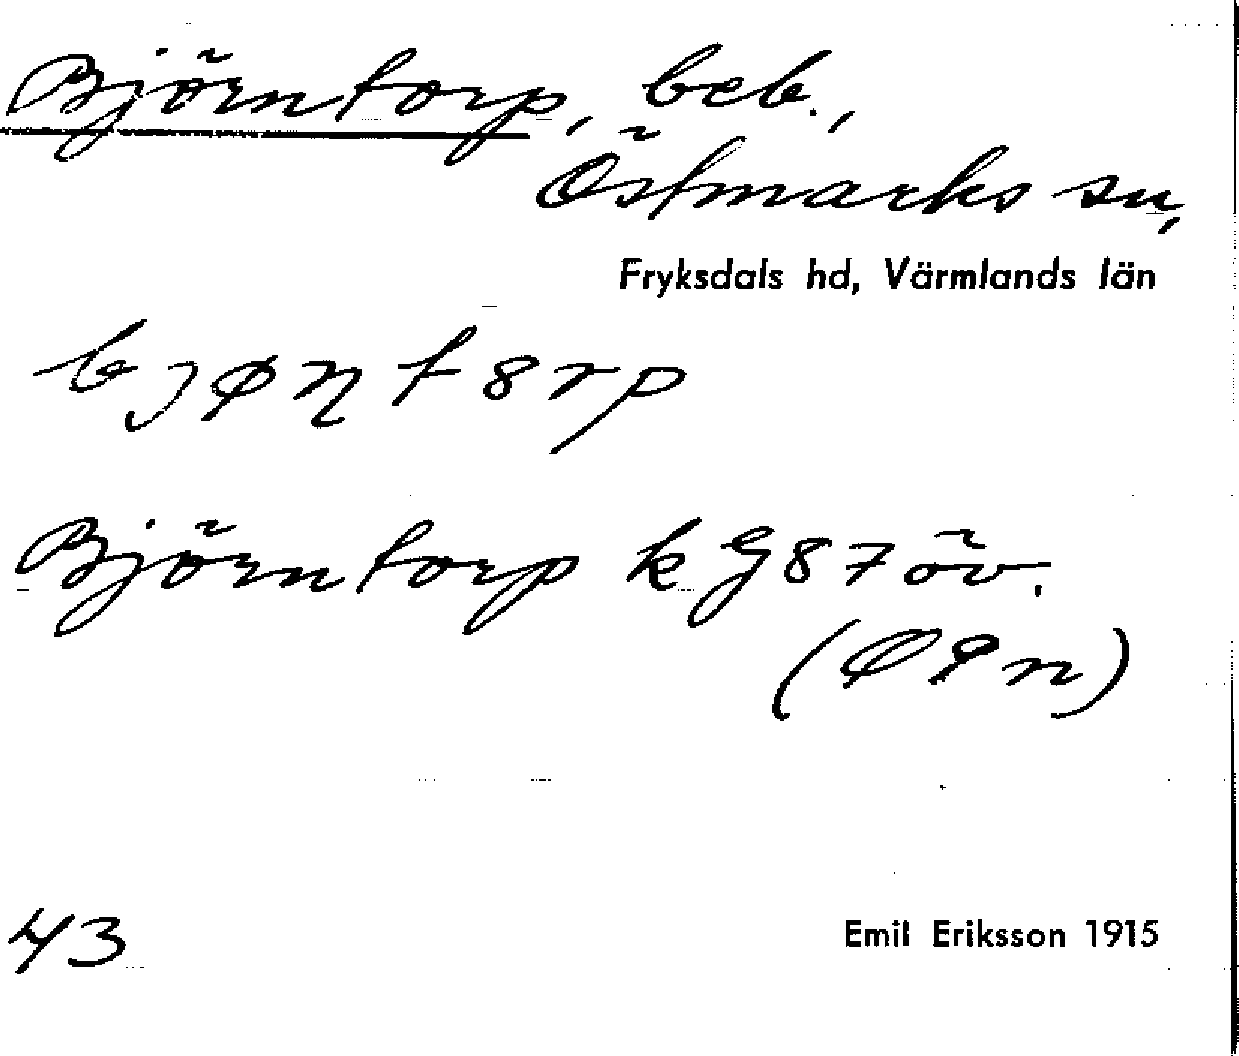 Björntorp, beb.,
Östmarks sn,
Fryksdals hd, Värmlands län
bjøɳtorp
Björntorp k G87 öv.
43
Emil Eriksson 1915